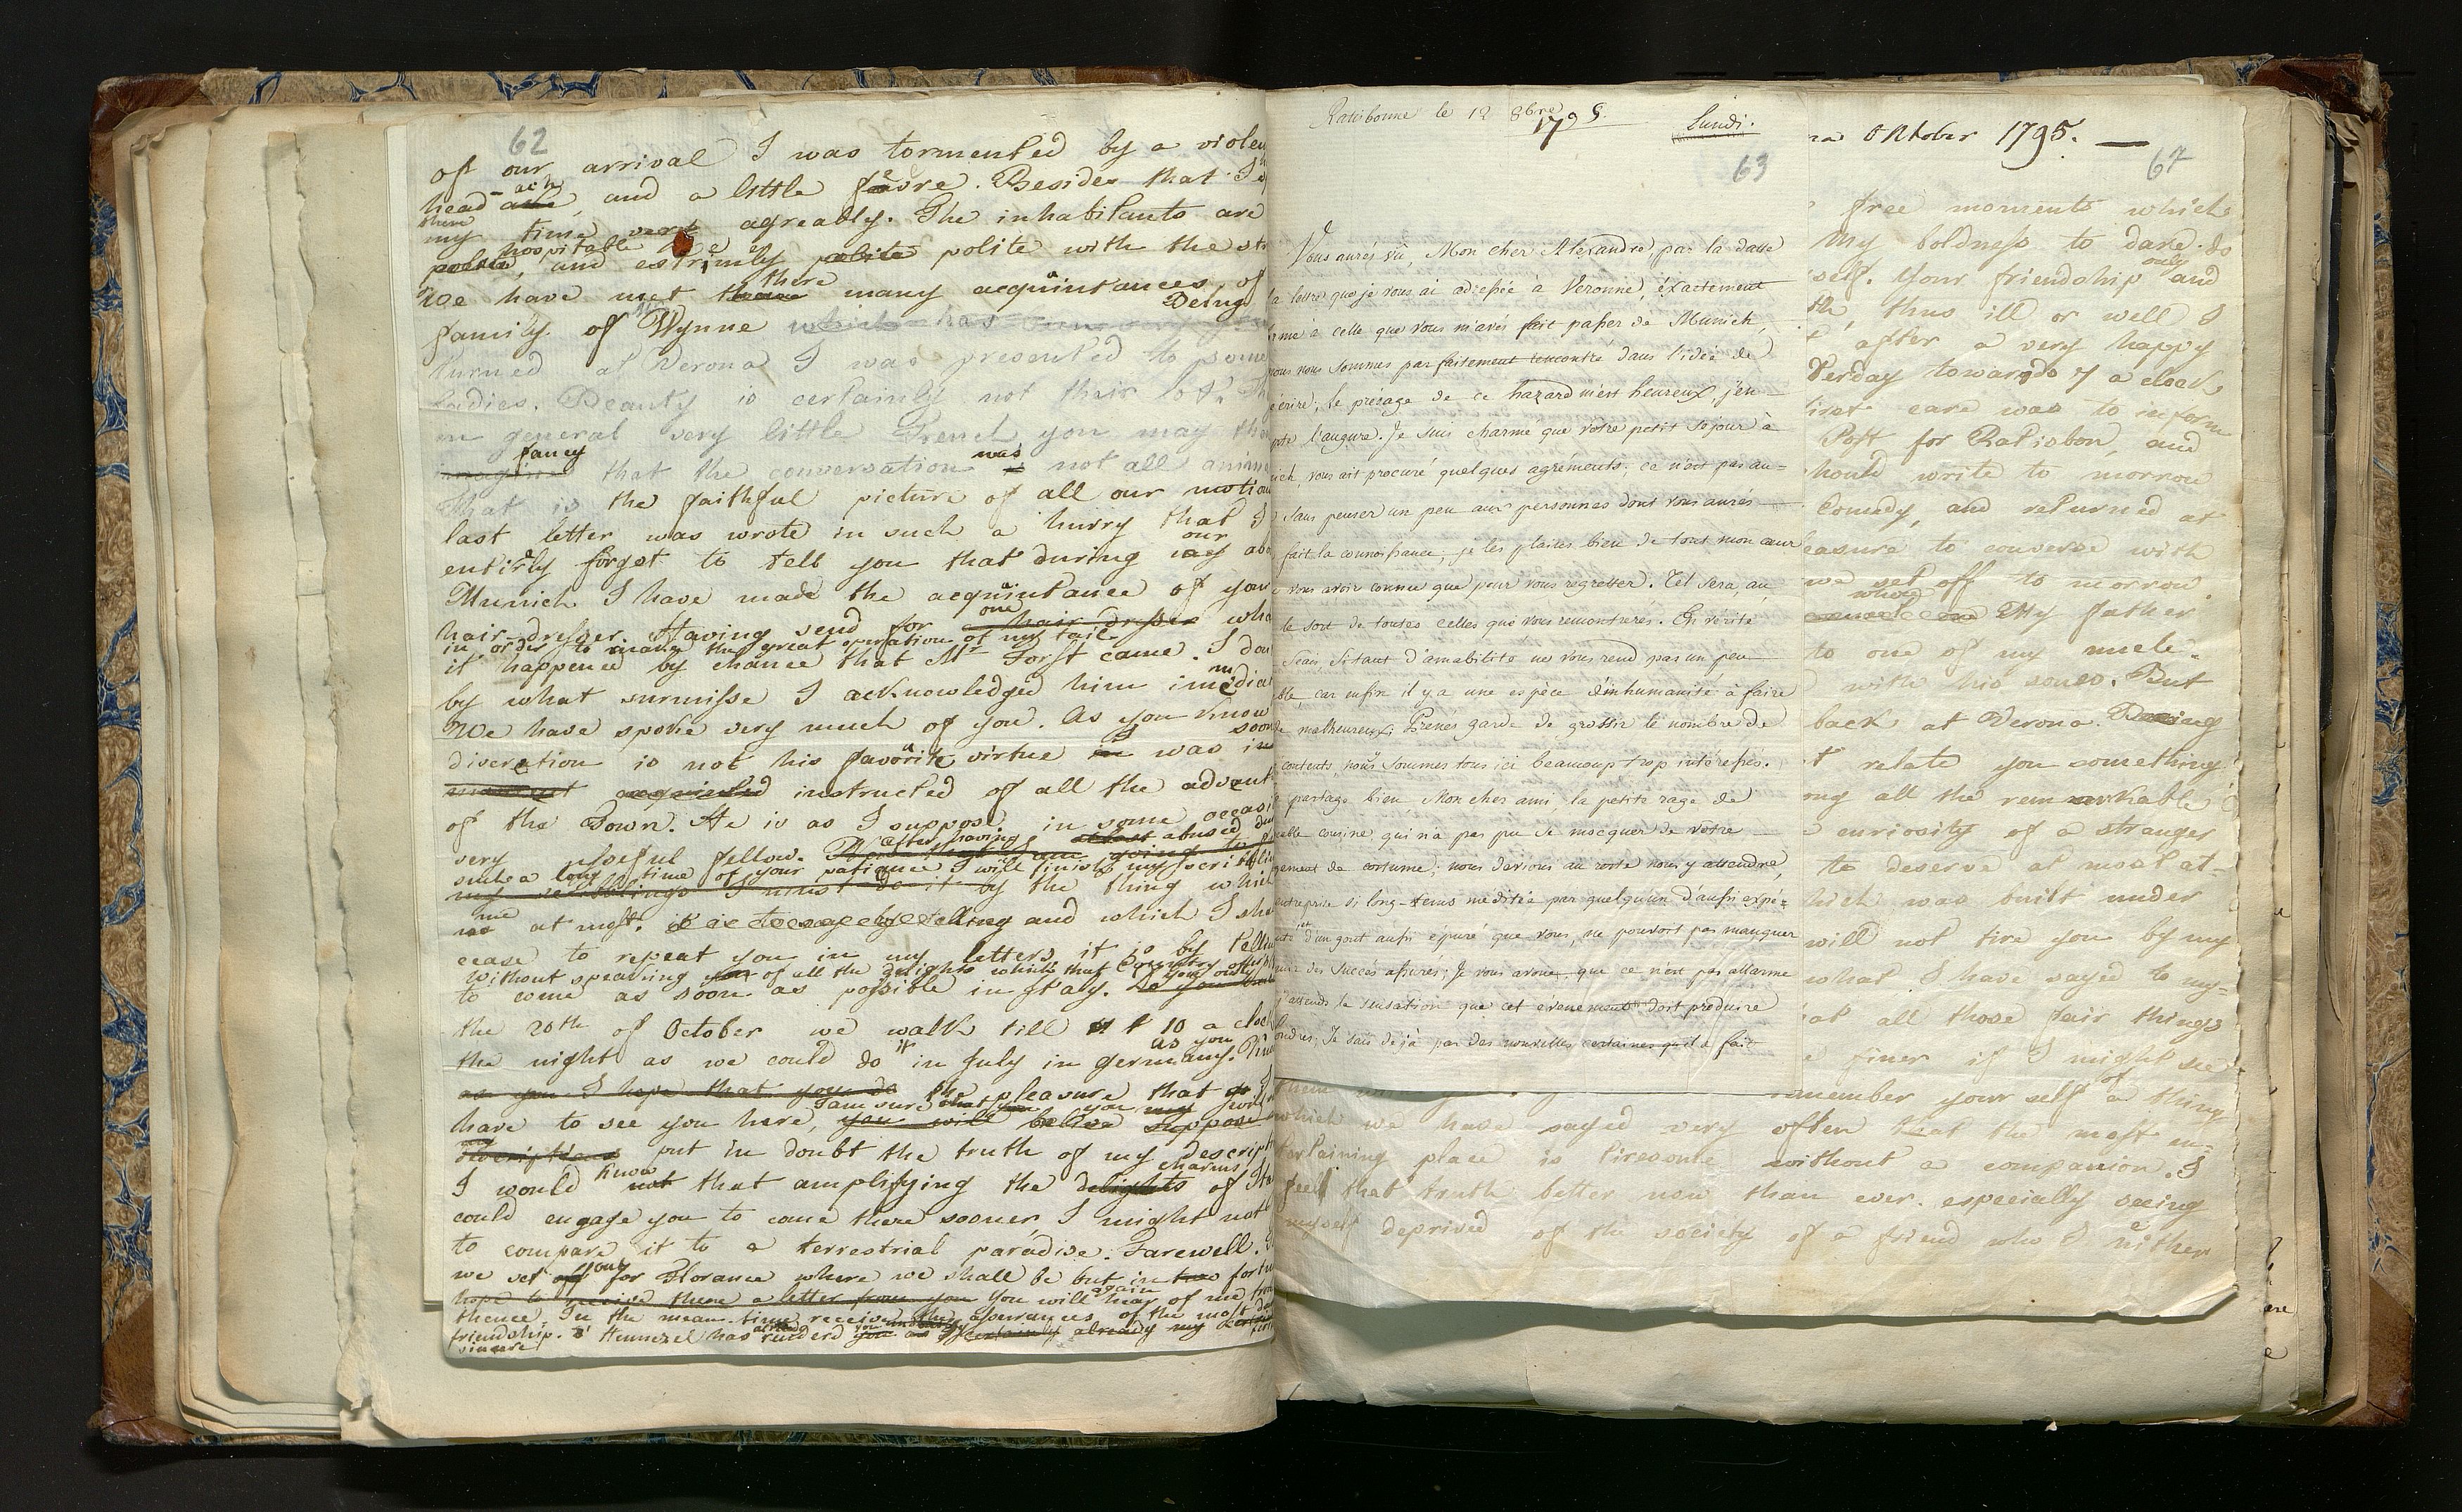 62
of our arrival I was tormented by a violen
head-ach, and a little fevre. Besides that I
there
my time very agreably. The inhabitants are
hospitable, and extrimely polite polite with the str
We have met there many acquaintances of
family of Wynne which has Being
turned at Verona I was presented to some
ladies. Beauty is certainly not their lot. Th
in general very little French, you may the
fancy that the conversation was not all anim
That is the faithful picture of all our motion
last letter was wrote in such a hurry that I
entirely forgot to tell you that during our abo
Munich I have made the acquaintance of your
hair-dresser. Having send for one hair dresser who
in order to make the great operation of my tail
it happened by chance that Mr Forst came. I don
by what surmisse I acknowledged him immediat
We have spoke very much of you. As you know
discretion is not his favorite virtue it was soon
acquainted instructed of all the advent
of the Town. He is as I suppose in some occasi
very usseful fellow. After having abused du
such a long time of your patience I will finish my scribblin
my scriblings I must do it by the thing which
me at most. and which I sha
cease to repeat you in my letters, it is by tellin
Without speaking of all the delights which that Country
to come as soon as possible in Italy.
the 20th of October we walk till at 10 a cloc
the night as we could do it in July in Germany. As you
as you I hope that you do the pleasure that I
I am sure that you you my
have to see you here, you will believe suppose
my
descriptions put in doubt the truth of my Descript
I would know not that amplifying the charms delights of Ita
could engage you to come there sooner, I might not
to compare it to a terrestrial paradise. Farewell.
we set off for Florance where we shall be but in two fortn
hope to received there a letter from you You will hear again of me from
thence. In the mean time receive the assurances of the most
friendship. Hennezel has renderd you as certainly already my
sincere
Ratisbonne le 12 8bre 1795. Lundi.
63
Vous aurés vû, Mon cher Alexandre, par la datte
la lettre que je vous ai adressée à Véronne, éxactement
me à celle que vous m'avés fait passer de Munich,
nous nous sommes parfaitement rencontré dans l'idée de
écrire; le présage de ce hazard m'est heureux, j'en
pte l'augure. Je suis charmé que votre petit séjour à
ich, vous ait procuré quelques agréments; ce n'est pas
sans penser un peu aux personnes dont vous aurés
fait la connoissance; je les plains bien de tout mon cœur
vous avoir connu que pour vous regretter. Tel sera, au
le sort de toutes celles que vous rencontrerés. En vérité
sçais, si tant d'amabilité ne vous rend pas un peu
ble, car enfin il y a une espèce d'inhumanité à faire
de malheureux; Prenés garde de grossir le nombre de
contents, nous sommes tous ici beaucoup trop intéressés.
partage bien Mon cher ami, la petite rage de
able cousine qui n'a pas pu se mocquer de votre
gement de costume; nous devions au reste nous y attendre,
entreprise si long-tems méditée par quelqu'un d'aussi expé=
té et d'un gout aussi épuré que vous, ne pouvoit pas manquer
voir des succès assurés; Je vous avoue, que ce n'est pas allarme
j'attends la sensation que cet evenement doit produire
ondres; Je sais déjà par des nouvelles certaines qu'il a fait
na Oktober 1795. —
67
free moments which
my boldness to dare. do
self. Your friendship only and
th, thus ill or well I
after a very happy
terday towards 7 a cloak
irst care was to inform
Post for Ratisbon, and
hould write to morrow
Comedy, and returned at
easure to converse with
we set off to morrow.
whose My father
to one of my uncle-
with his sones. But
back at Verona. Being
t relate you something
ong all the remarkable
curiosity of a stranger
to deserve at most at=
hich was built under
will not tire you by my
what I have sayed to my=
at all those fair things
finer if I might see
them remember your self of a thing
which we have sayed very often that the most en=
tertaining place is tiresome without a companion. I
feel that truth better now than ever. especially seeing
myself deprived of the society of a friend who I neither